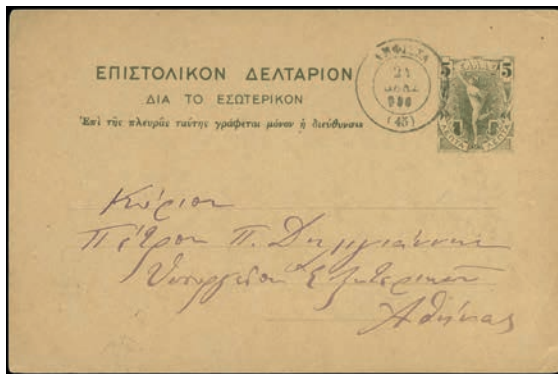 ΕΠΙΣΤΟΛΙΚΟΝ ΔΕΛΤΑΡΙΟΝ
ΔΙΑ ΤΟ ΕΣΩΤΕΡΙΚΟΝ
Ἐπὶ τῆς πλευρᾶς ταύτης γράφεται μόνον ἡ διεύθυνσις
ΑΜΦΙΣΣΑ
21
(45)
5 ΕΛΛΑΣ 5
ΛΕΠΤΑ ΛΕΠΤΑ
Κύριον
Πέτρον Π.
Ὑπουργεῖον Ἐξωτερικῶν
Ἀθήνας